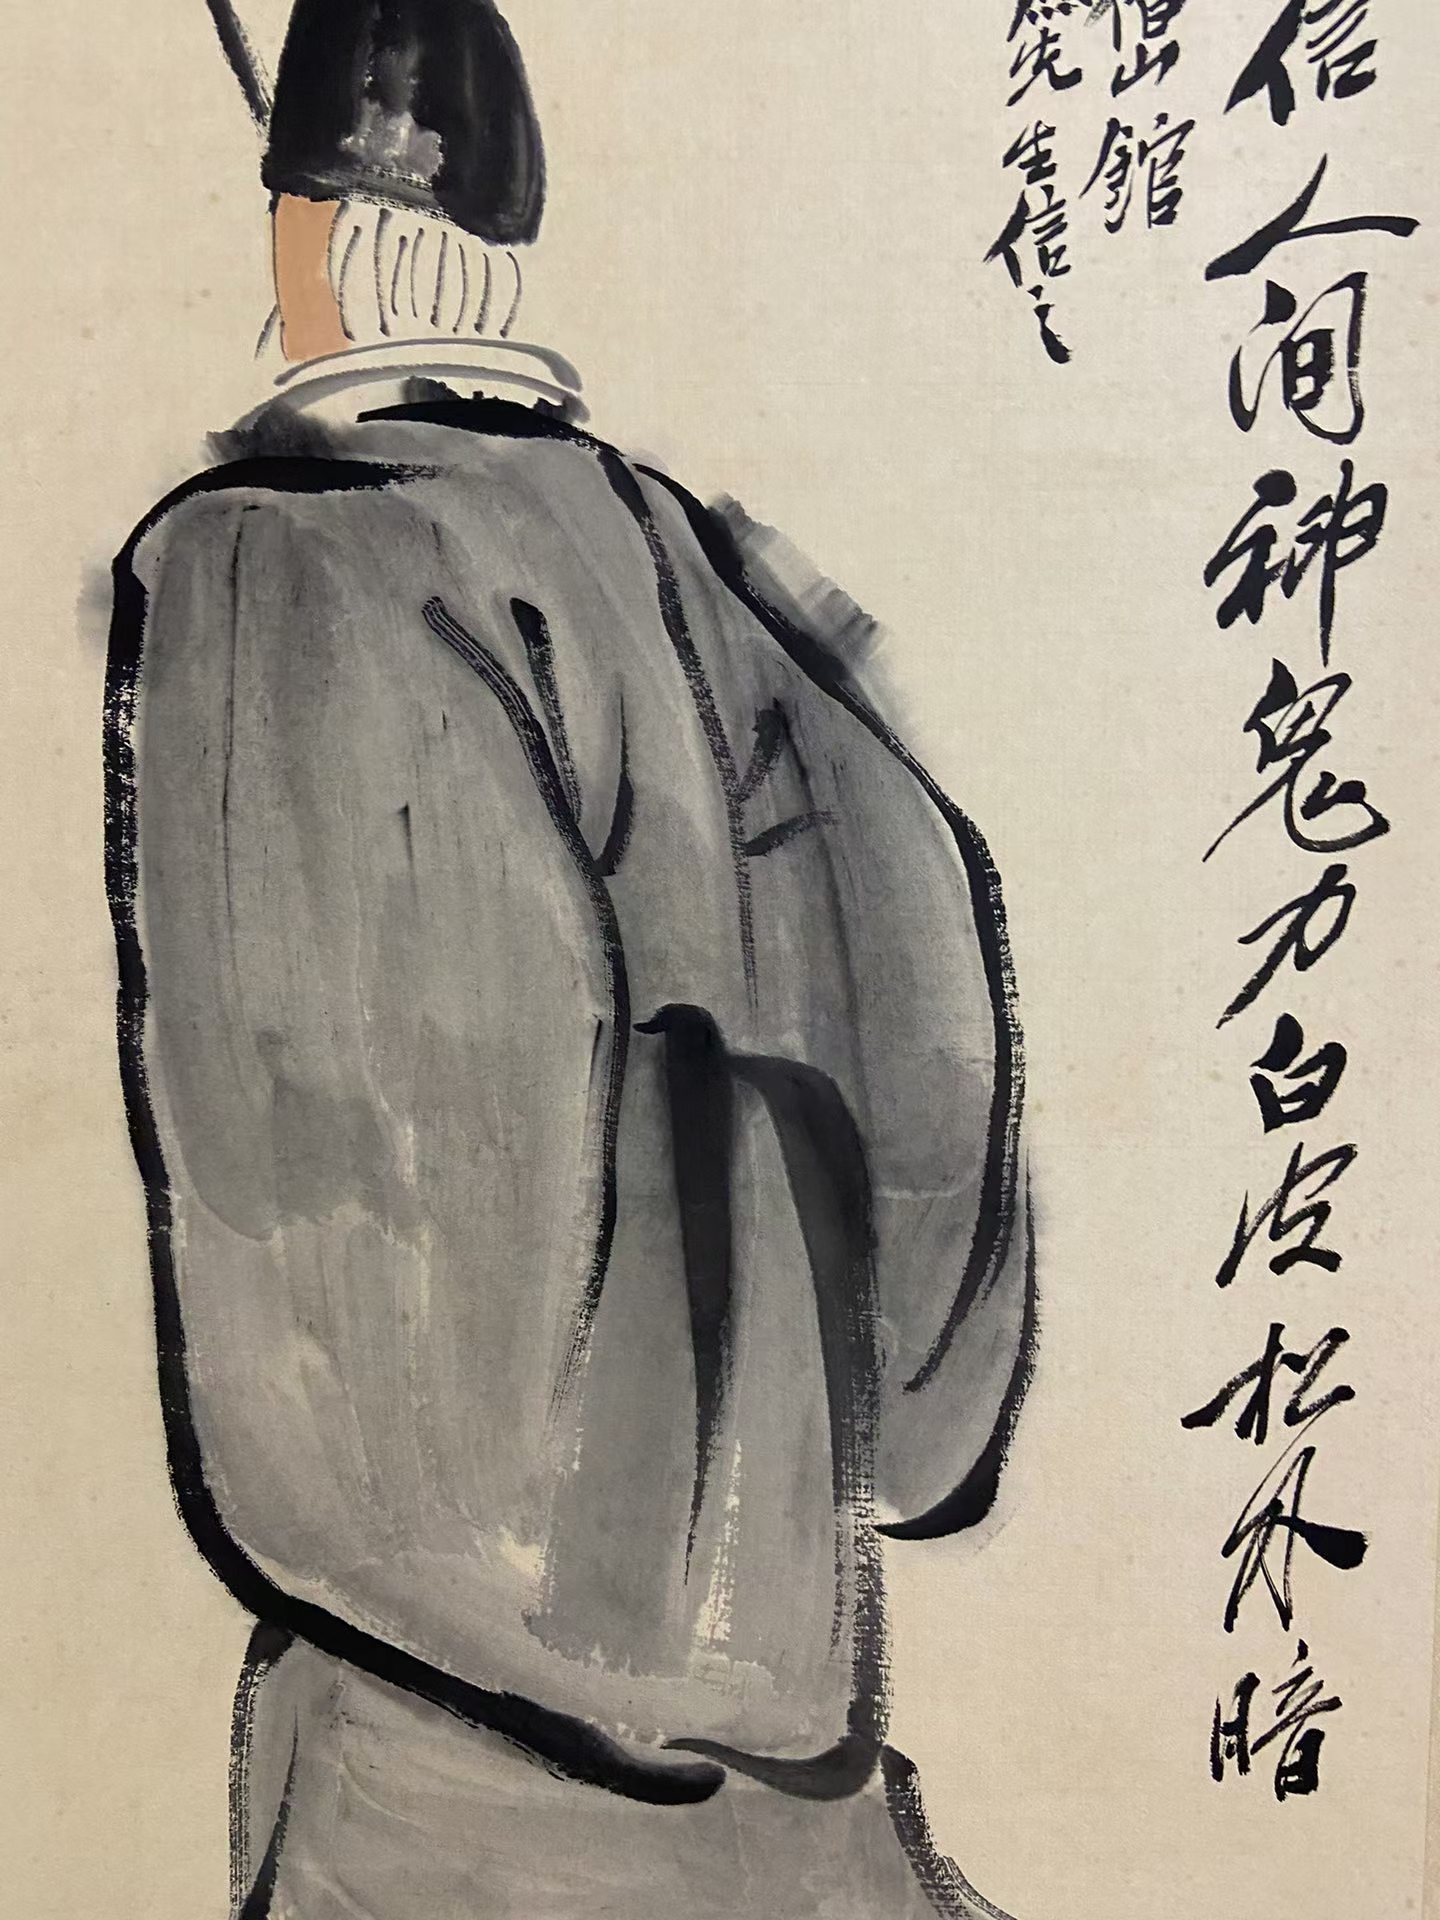 信人间神鬼力白皮松外暗
借山館
先生信之